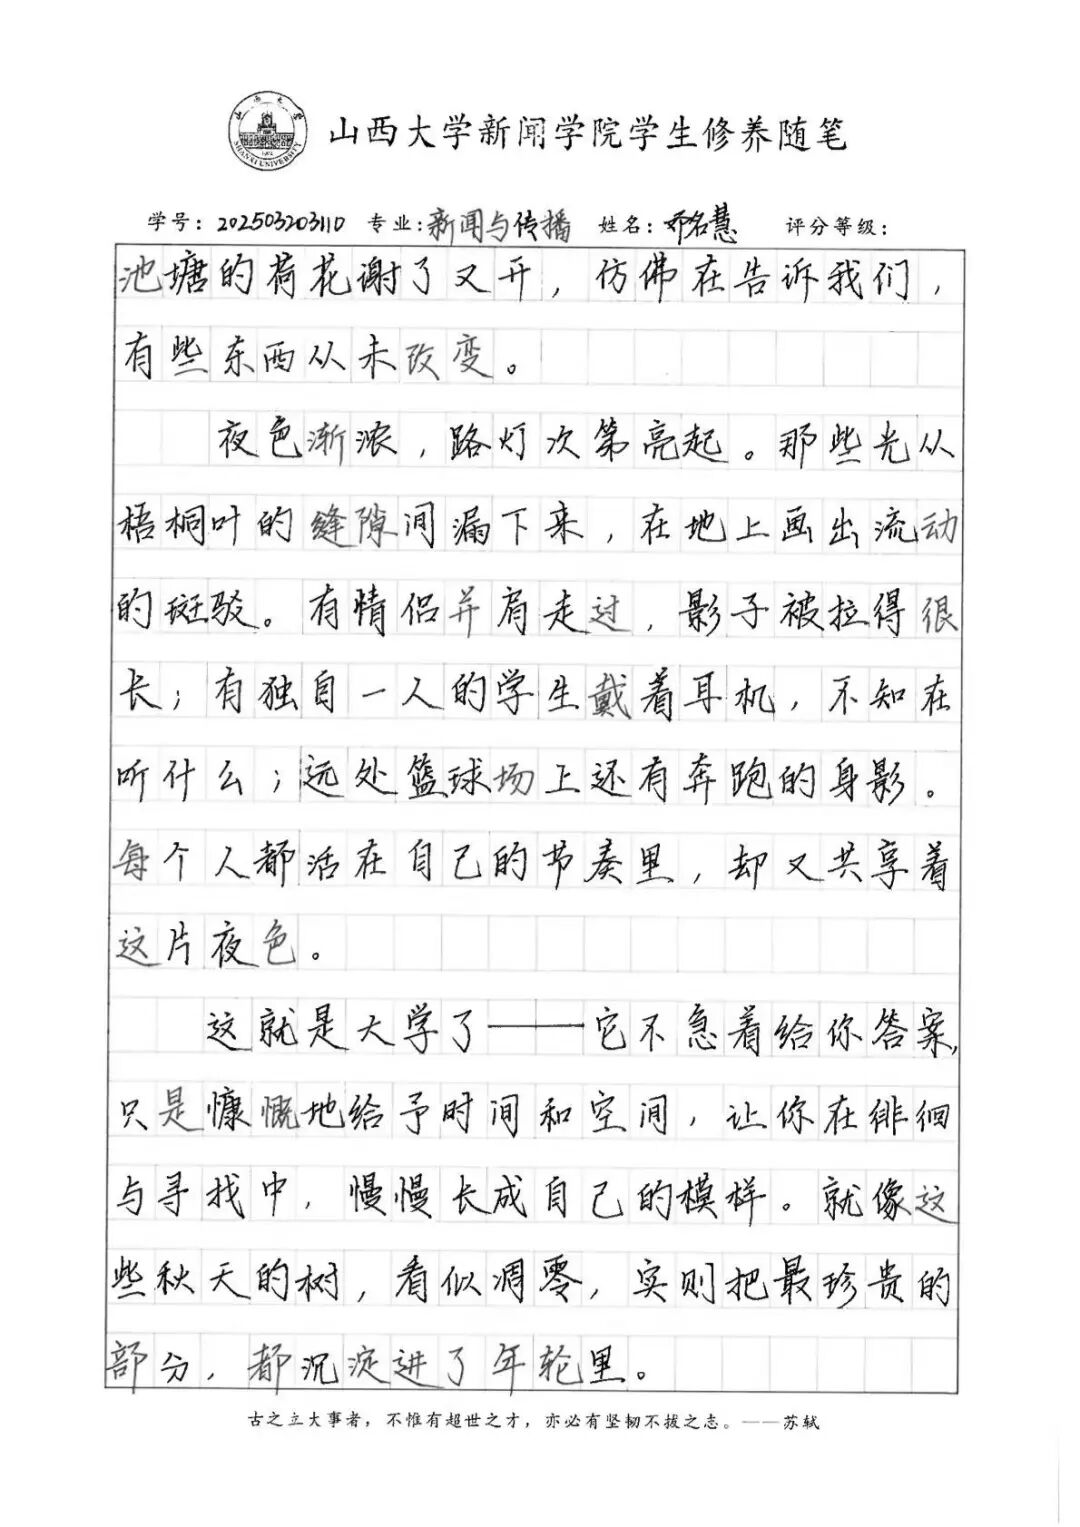 山西大学
SHANXI UNIVERSITY
1902
山西大学新闻学院学生修养随笔
学号：202503203110 专业：新闻与传播 姓名：邓名慧 评分等级：
池塘的荷花谢了又开，仿佛在告诉我们，
有些东西从未改变。
夜色渐浓，路灯次第亮起。那些光从
梧桐叶的缝隙间漏下来，在地上画出流动
的斑驳。有情侣并肩走过，影子被拉得很
长；有独自一人的学生戴着耳机，不知在
听什么；远处篮球场上还有奔跑的身影。
每个人都活在自己的节奏里，却又共享着
这片夜色。
这就是大学了——它不急着给你答案，
只是慷慨地给予时间和空间，让你在徘徊
与寻找中，慢慢长成自己的模样。就像这
些秋天的树，看似凋零，实则把最珍贵的
部分，都沉淀进了年轮里。
古之立大事者，不惟有超世之才，亦必有坚韧不拔之志。——苏轼